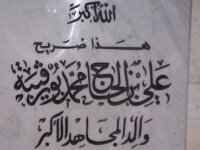 الله أكبر
هذا ضريح
علي بن الحاج محمد بورقيبة
والد المجاهد الأكبر